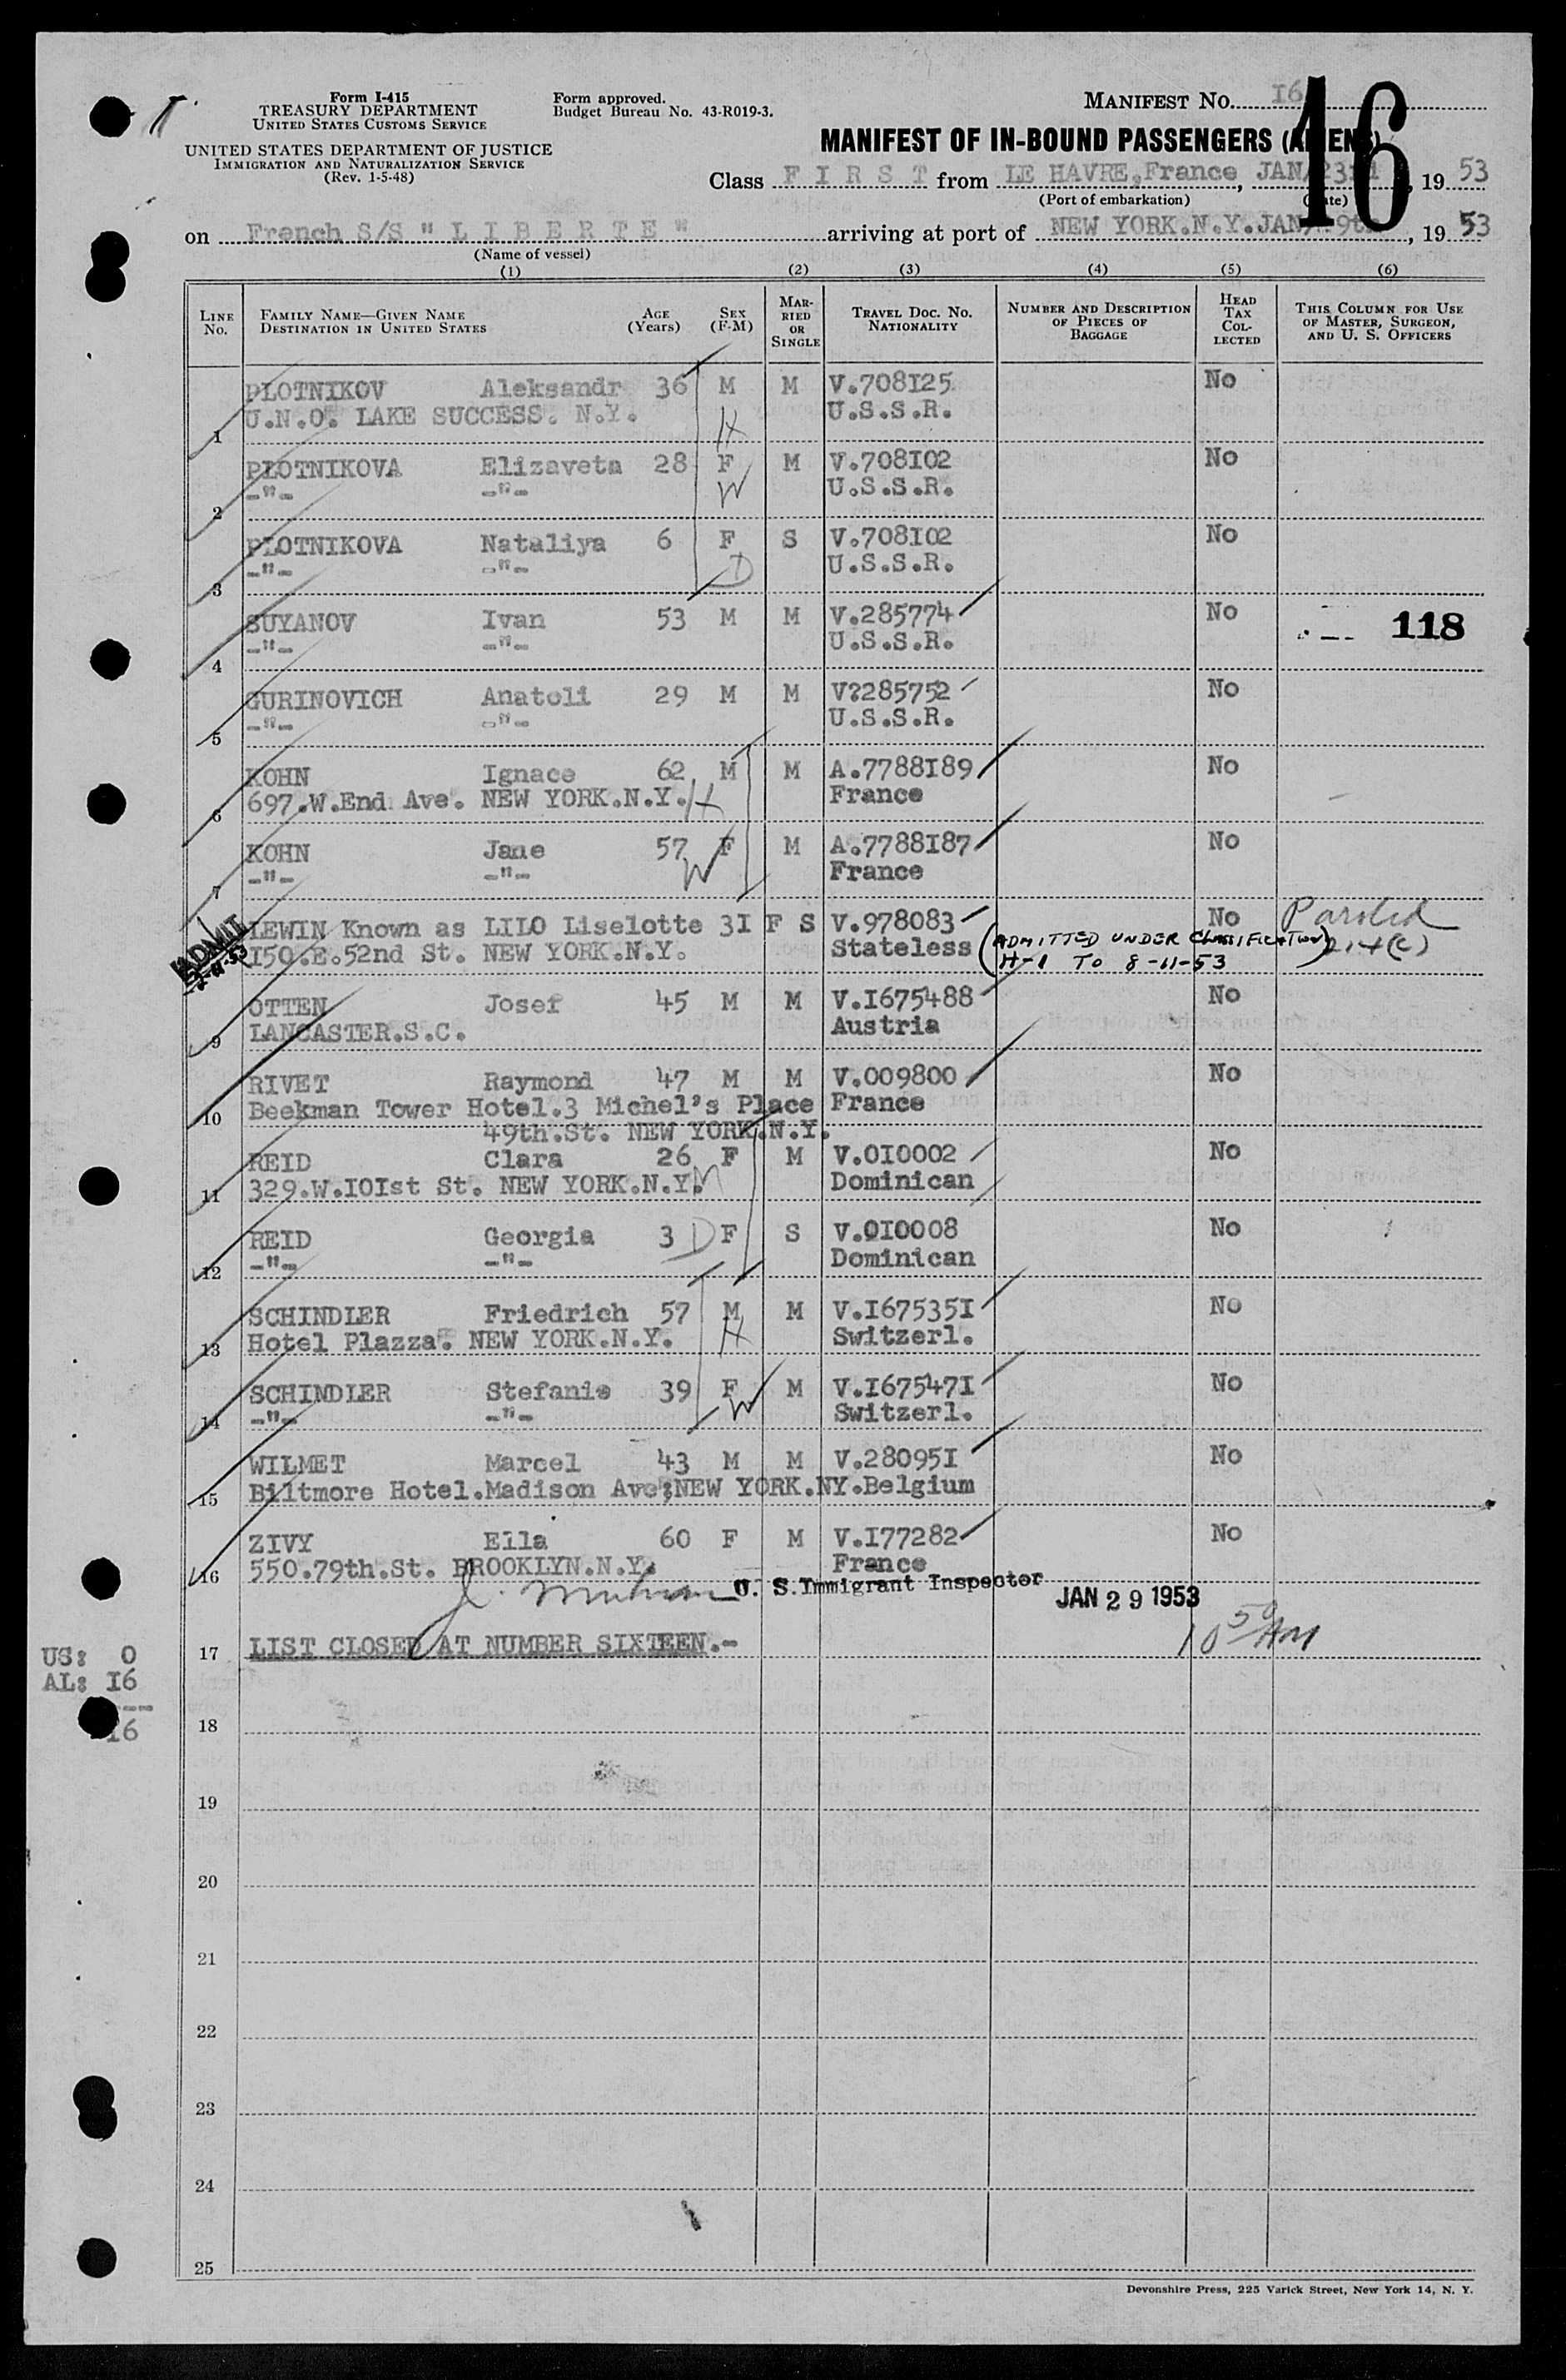 Form I-415
TREASURY DEPARTMENT
UNITED STATES CUSTOMS SERVICE
UNITED STATES DEPARTMENT OF JUSTICE
IMMIGRATION AND NATURALIZATION SERVICE
(Rev. 1-5-48)
Form approved.
Budget Bureau No. 43-R019-3.
MANIFEST No. 16
16
MANIFEST OF IN-BOUND PASSENGERS (ALIENS)
Class F I R S T from LE HAVRE,France, JAN/23rd, 19 53
(Port of embarkation) (Date)
on French S/S " L I B E R T E " arriving at port of NEW YORK.N.Y.JAN 19 53
(Name of vessel)
(1) (2) (3) (4) (5) (6)
LINE No. FAMILY NAME—GIVEN NAME DESTINATION IN UNITED STATES AGE (Years) SEX (F-M) MARRIED OR SINGLE TRAVEL DOC. NO. NATIONALITY NUMBER AND DESCRIPTION OF PIECES OF BAGGAGE HEAD TAX COLLECTED THIS COLUMN FOR USE OF MASTER, SURGEON, AND U. S. OFFICERS
PLOTNIKOV Aleksandr 36 M M V.708125 No
1 U.N.O. LAKE SUCCESS. N.Y. H U.S.S.R.
PLOTNIKOVA Elizaveta 28 F M V.708102 No
2 -"- -"- W U.S.S.R.
PLOTNIKOVA Nataliya 6 F S V.708102 No
3 -"- -"- D U.S.S.R.
SUYANOV Ivan 53 M M V.285774 No 118
4 -"- -"- U.S.S.R.
GURINOVICH Anatoli 29 M M V?285752 No
5 -"- -"- U.S.S.R.
KOHN Ignace 62 M M A.7788189 No
6 697.W.End Ave. NEW YORK.N.Y. H France
KOHN Jane 57 F M A.7788187 No
7 -"- -"- W France
ADMIT LEWIN Known as LILO Liselotte 31 F S V.978083 No Paroled
150.E.52nd St. NEW YORK.N.Y. Stateless (ADMITTED UNDER CLASSIFICATION H-1 TO 8-11-53)
OTTEN Josef 45 M M V.1675488 No
9 LANCASTER.S.C. Austria
RIVET Raymond 47 M M V.009800 No
10 Beekman Tower Hotel.3 Michel's Place France
49th.St. NEW YORK.N.Y.
REID Clara 26 F M V.010002 No
11 329.W.101st St. NEW YORK.N.Y. M Dominican
REID Georgia 3 D F S V.010008 No
12 -"- -"- Dominican
SCHINDLER Friedrich 57 M M V.1675351 No
13 Hotel Plazza. NEW YORK.N.Y. H Switzerl.
SCHINDLER Stefanie 39 F M V.1675471 No
14 -"- -"- W Switzerl.
WILMET Marcel 43 M M V.280951 No
15 Biltmore Hotel.Madison Ave;NEW YORK.NY.Belgium
ZIVY Ella 60 F M V.177282 No
16 550.79th.St. BROOKLYN.N.Y. France
U. S. Immigrant Inspector JAN 29 1953
10 50 AM
17 LIST CLOSED AT NUMBER SIXTEEN.-
US: 0
AL: 16
---
16
18
19
20
21
22
23
24
25
Devonshire Press, 225 Varick Street, New York 14, N. Y.